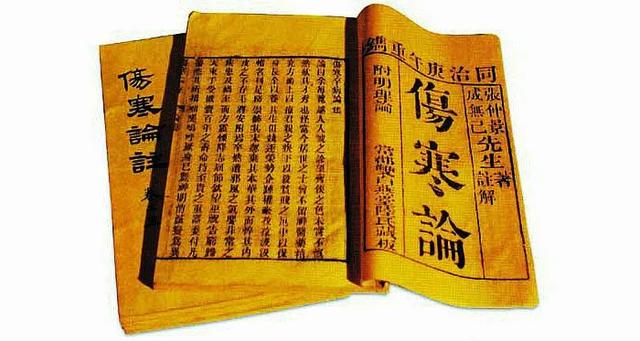 同治庚午年重鐫
張仲景先生著
成無己先生註解
傷寒論
附明理論
常郡雙白燕堂陸氏藏板
傷寒卒病論集
論曰余每覽越人入虢之診望齊侯之色未嘗不慨
然歎其才秀也怪當今居世之士曾不留神醫藥精
究方術上以療君親之疾下以救貧賤之厄中以保
身長全以養其生但競逐榮勢企踵權豪孜孜汲汲
惟名利是務崇飾其末忽棄其本華其外而悴其內
皮之不存毛將安附焉卒然遭邪風之氣嬰非常之
疾患及禍至而方震慄降志屈節欽望巫祝告窮歸
天束手受敗賫百年之壽命持至貴之重器委付凡
醫恣其所措咄嗟嗚呼厥身已斃神明消滅變為異
傷寒論註
卷